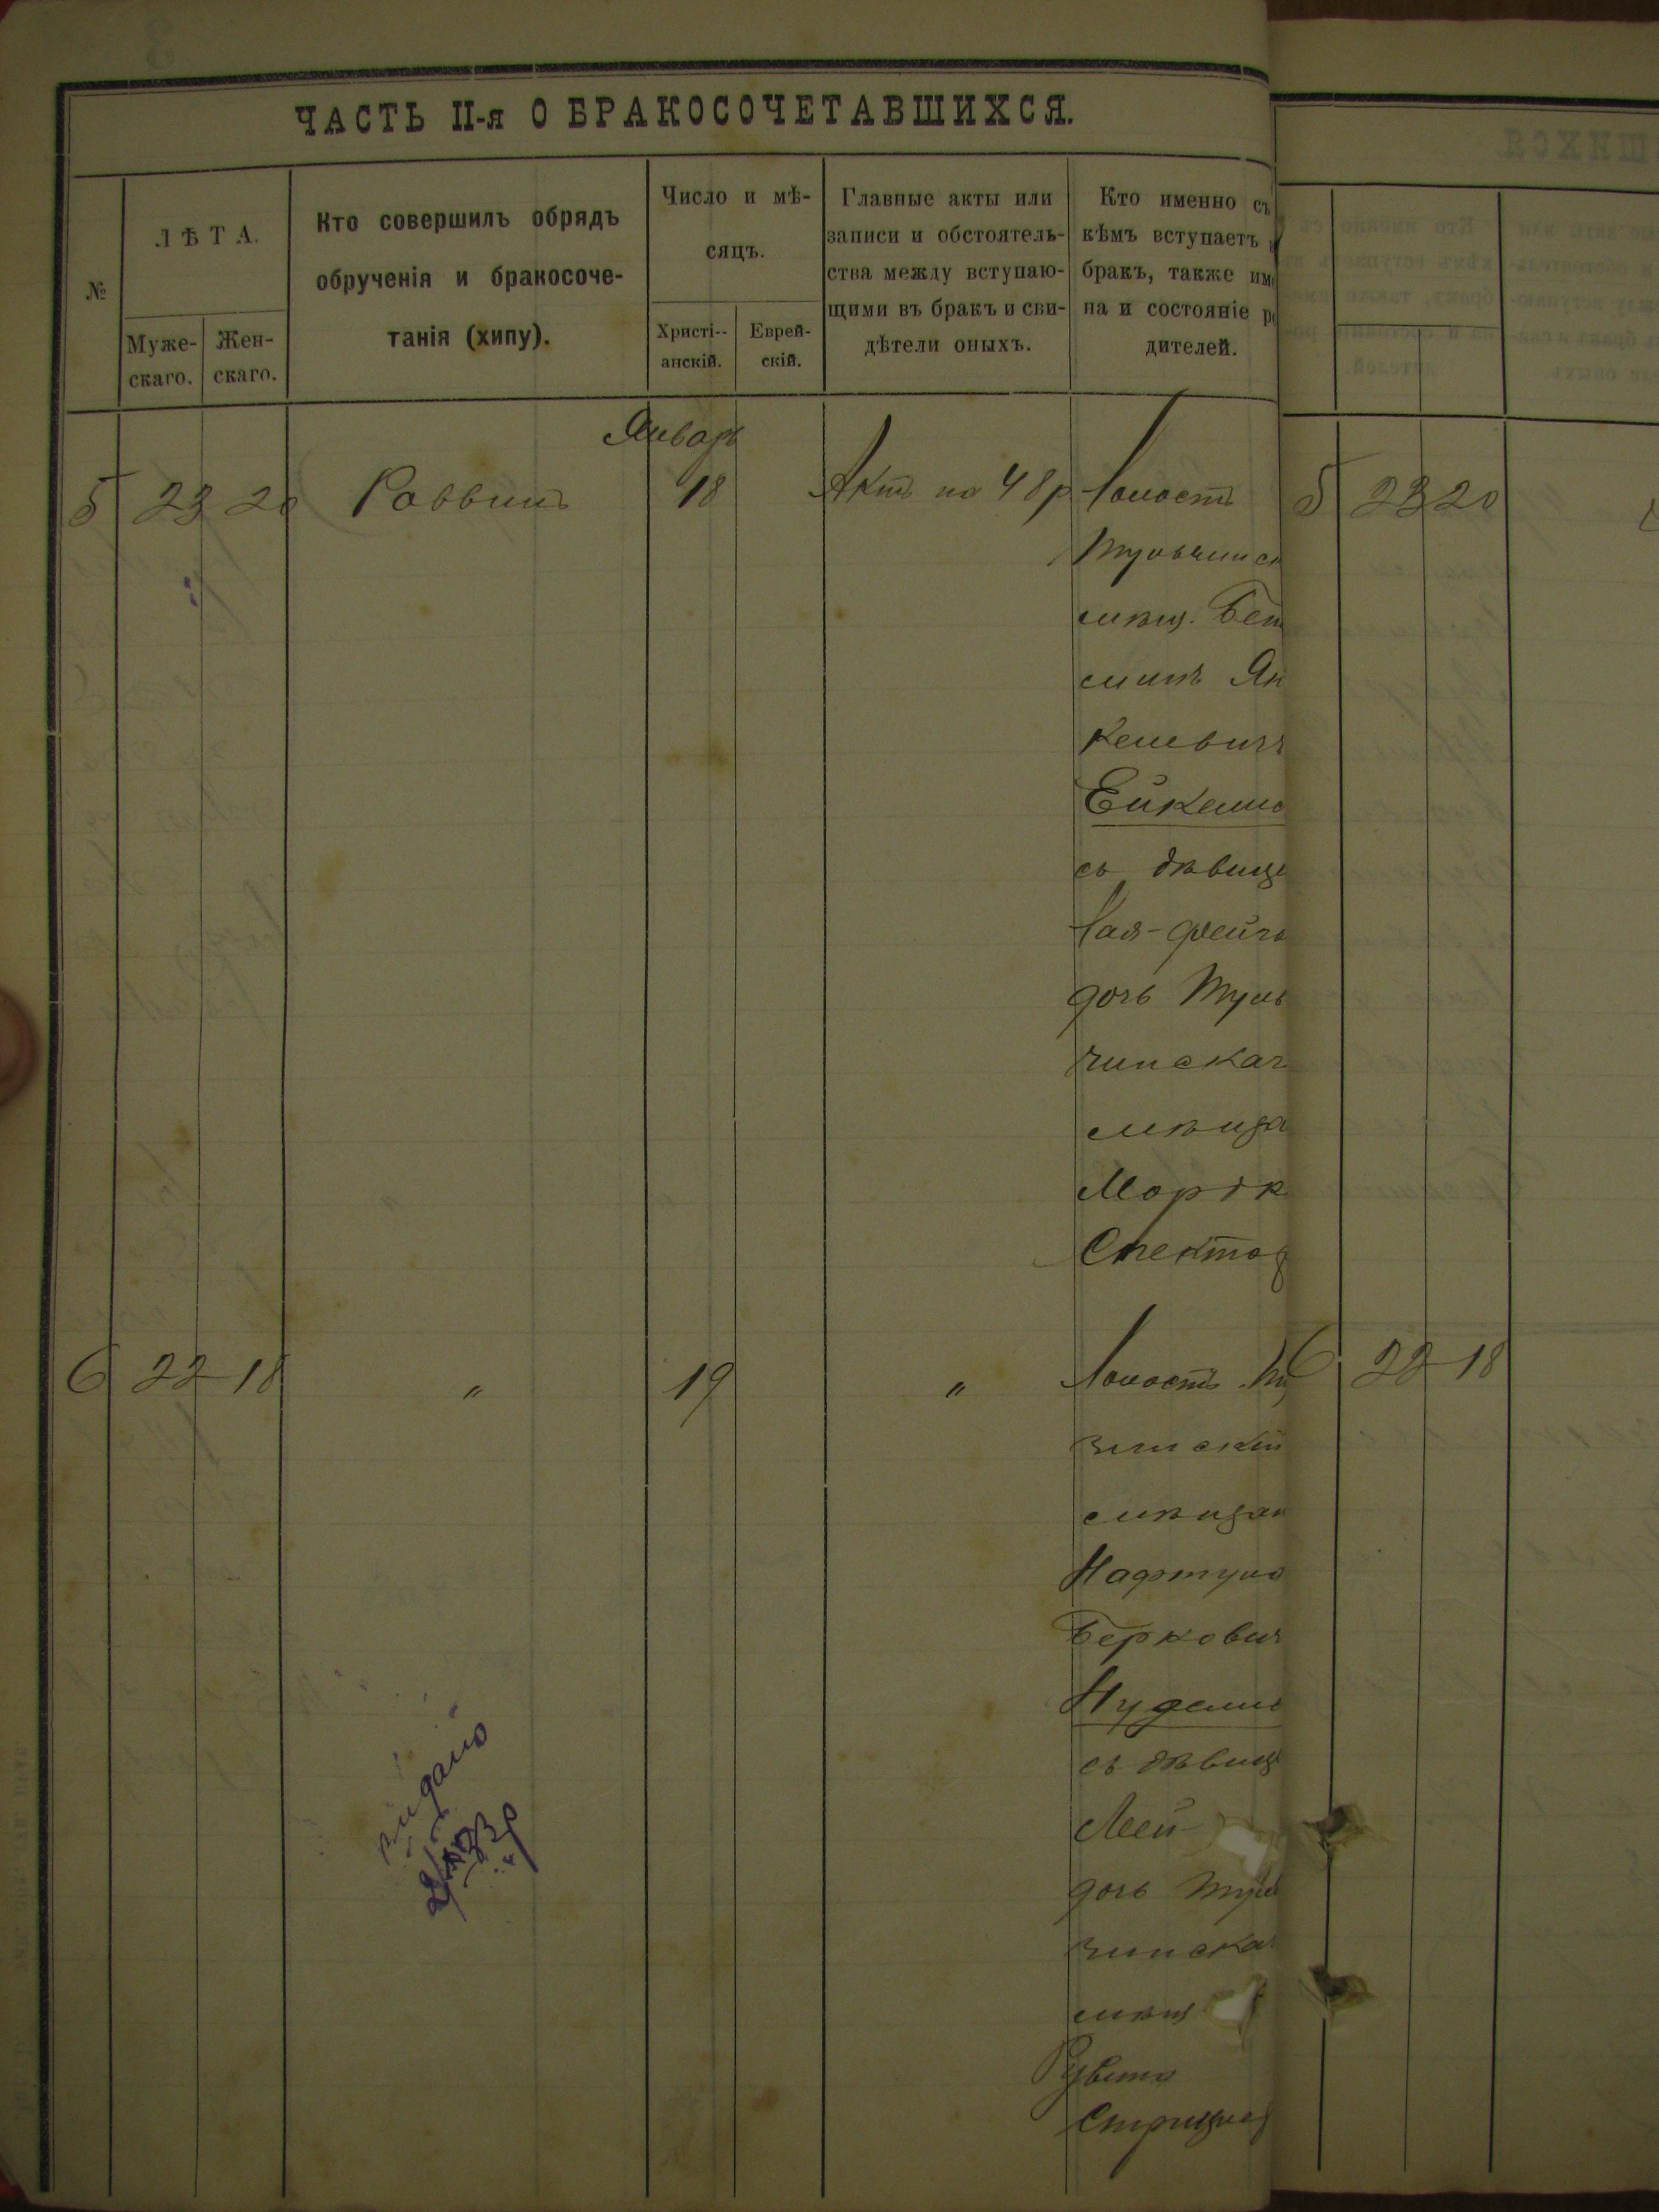 ЧАСТЬ II-я О БРАКОСОЧЕТАВШИХСЯ.
№
ЛѢТА.
Муже-
скаго.
Жен-
скаго.
Кто совершилъ обрядъ
обрученія и бракосоче-
танія (хипу).
Число и мѣ-
сяцъ.
Христі--
анскій.
Еврей-
скій.
Главные акты или
записи и обстоятель-
ства между вступаю-
щими въ бракъ и сви-
дѣтели оныхъ.
Кто именно съ
кѣмъ вступаетъ
бракъ, также име
на и состояніе ро
дителей.
Январь
5 23 20 Раввинъ 18 Актъ на 48 р Холостъ
Тульчинск
мѣщ. Бен
Ян
келевичъ
Ейкелис
съ дѣвице
Хая-Фейга
дочь Туль
чинскаг
мѣщан
Мордк
Спектор
6 22 18 " 19 " Холостъ
чинскій
мѣщан
Нафтула
Беркович
Нуделис
съ дѣвиц
Лей
дочь Туль
чинска
мѣщ
Рувина
выдано
5 23 20
6 22 18